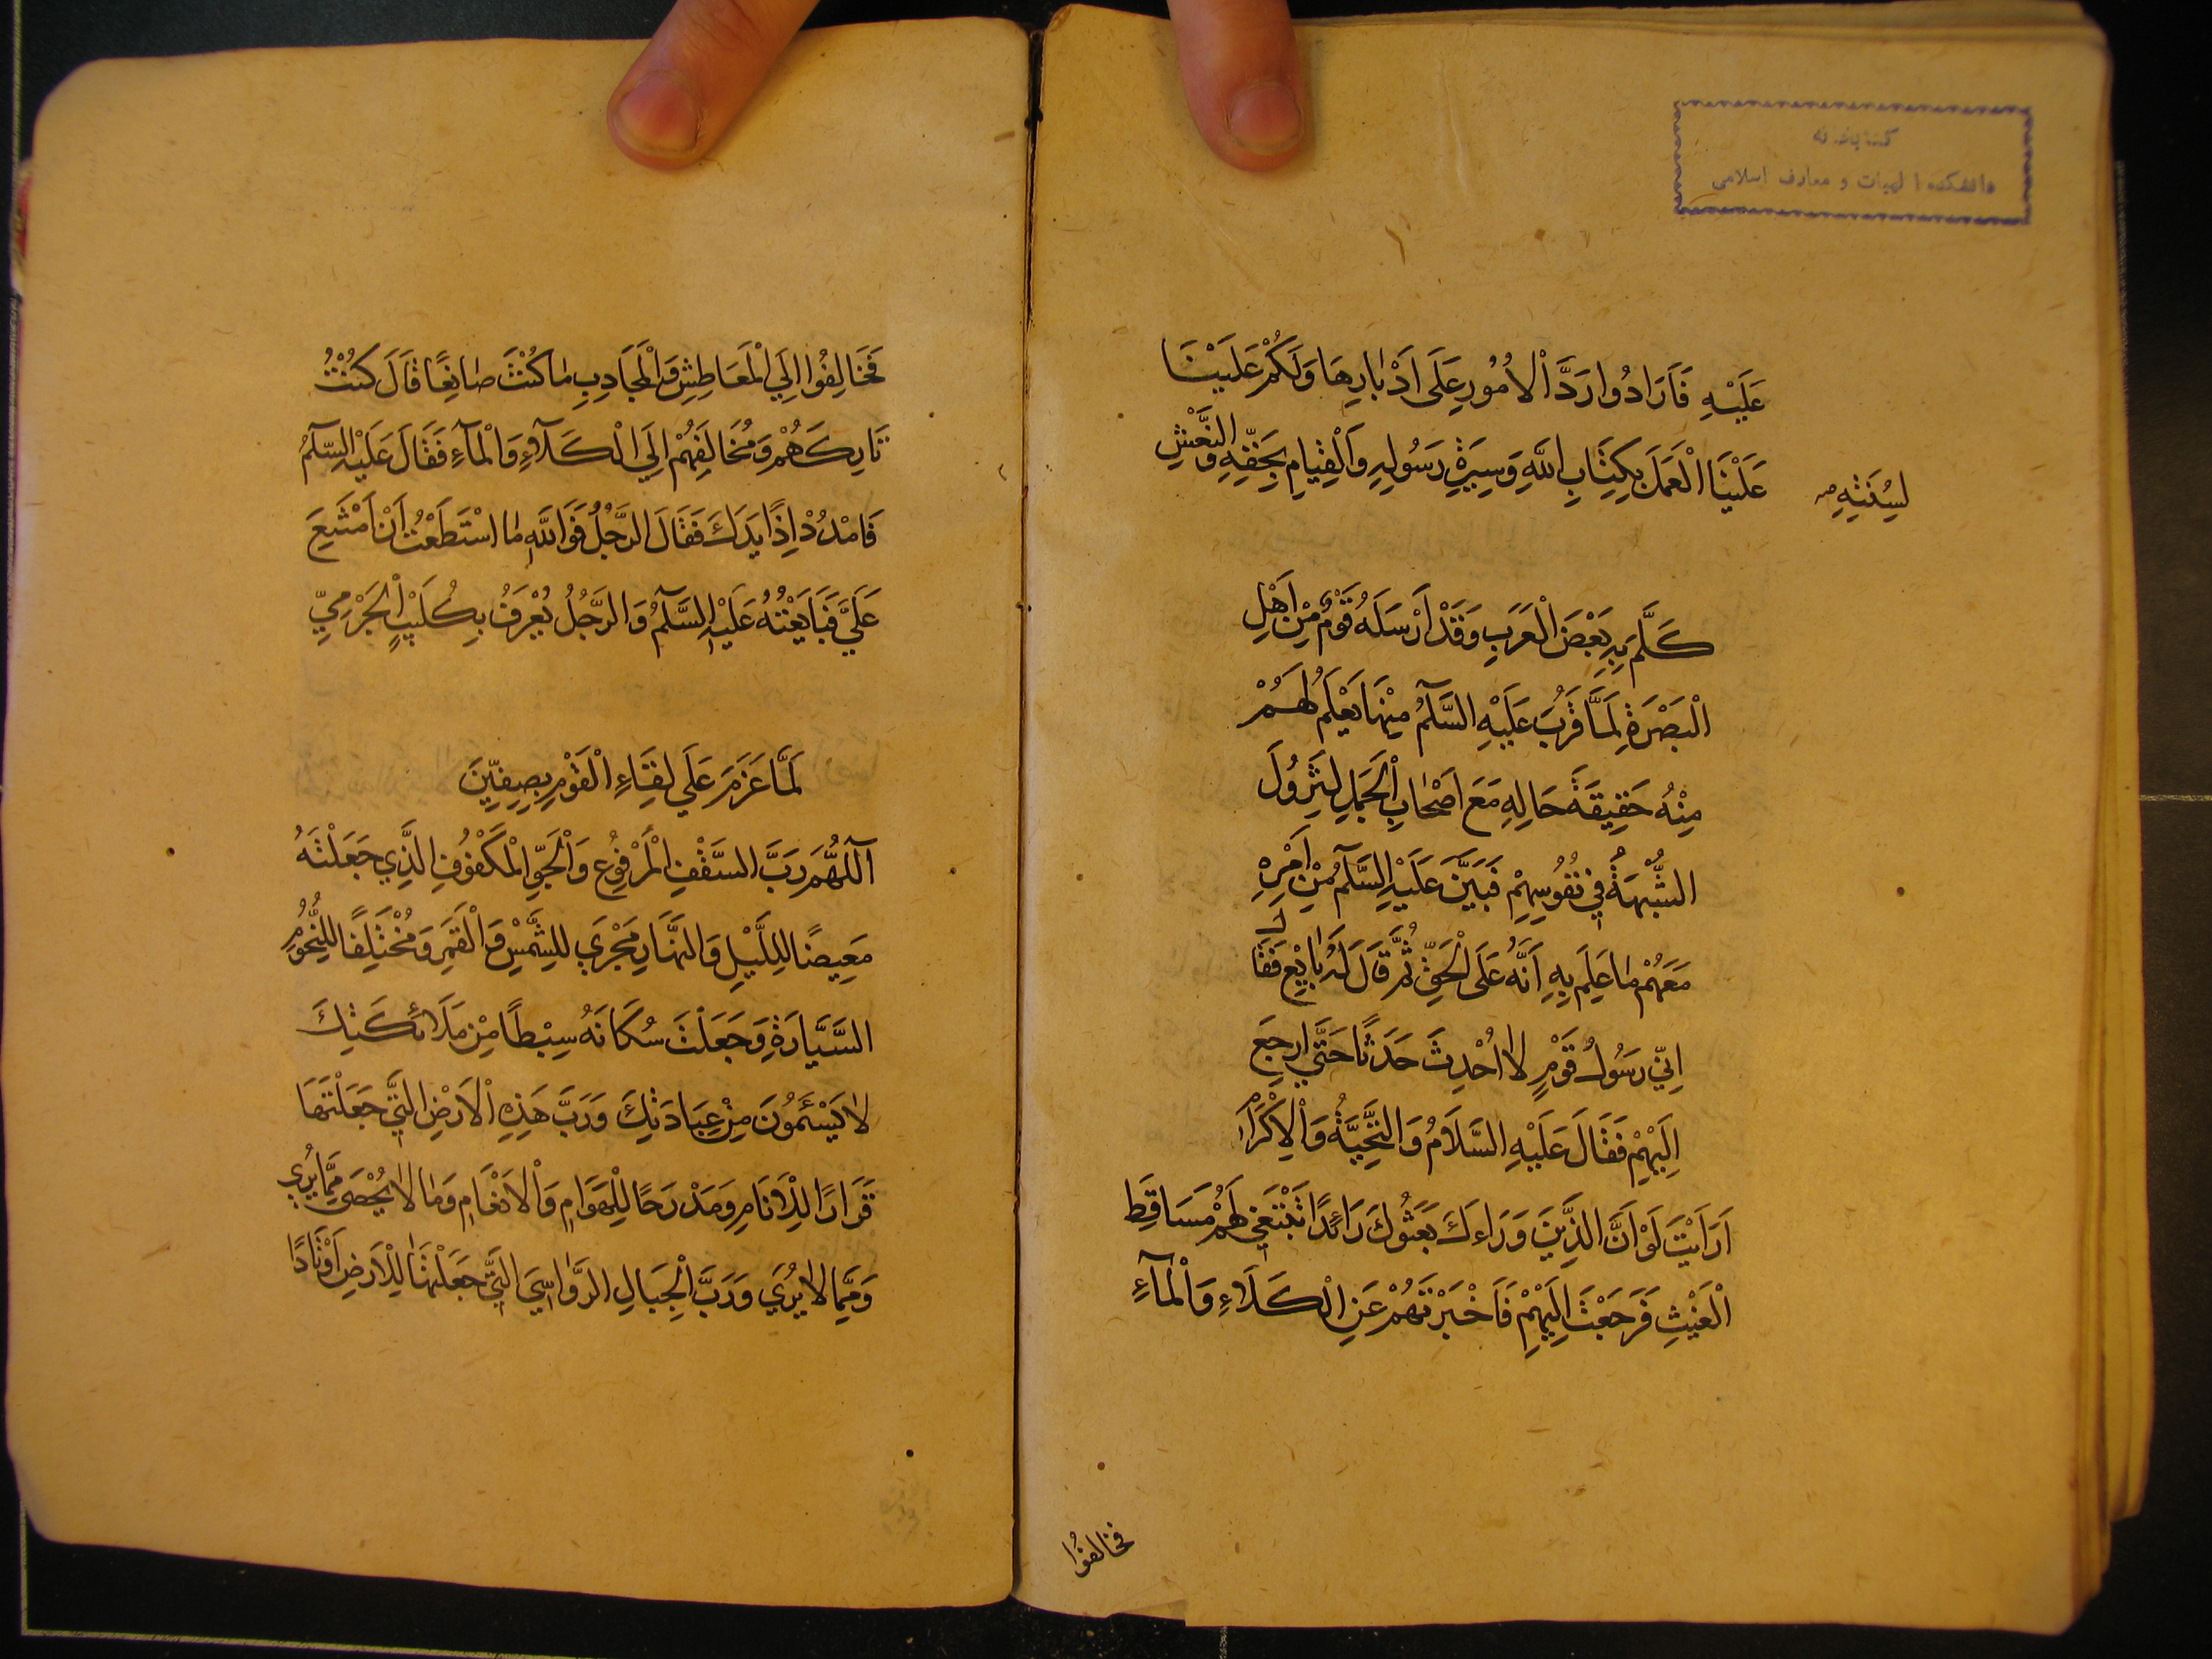 كتابخانه
دانشكده الهيات و معارف اسلامى
عَلَيْهِ فَاَرَادُوا رَدَّ الْاُمُورِ عَلَى اَدْبَارِهَا وَلَكُمْ عَلَيْنَا
عَلَيْنَا الْعَمَلَ بِكِتَابِ اللّهِ وَسِيرَةِ رَسُولِهِ وَالْقِيَامِ بِحَقِّهِ وَالنَّعْشِ
لِسُنَّتِهِ
كَلَّمَ بِهِ بَعْضَ الْعَرَبِ وَقَدْ اَرْسَلَهُ قَوْمٌ مِنْ اَهْلِ
الْبَصْرَةِ لَمَّا قَرُبَ عَلَيْهِ السَّلَامُ مِنْهَا يَعْلَمُ لَهُمْ
مِنْهُ حَقِيقَةَ حَالِهِ مَعَ اَصْحَابِ الْجَمَلِ لِتَزُولَ
الشُّبْهَةُ فِي نُفُوسِهِمْ فَبَيَّنَ عَلَيْهِ السَّلَامُ مِنْ اَمْرِهِ
مَعَهُمْ مَا عَلِمَ بِهِ اَنَّهُ عَلَى الْحَقِّ ثُمَّ قَالَ لَهُ بَايِعْ فَقَالَ
اِنِّي رَسُولُ قَوْمٍ لَا اُحْدِثُ حَدَثًا حَتَّى ارجِعَ
اِلَيْهِمْ فَقَالَ عَلَيْهِ السَّلَامُ وَالتَّحِيَّةُ وَالْاِكْرَامُ
اَرَاَيْتَ لَوْ اَنَّ الَّذِينَ وَرَاءَكَ بَعَثُوكَ رَائِدًا تَبْتَغِي لَهُمْ مَسَاقِطَ
الْغَيْثِ فَرَجَعْتَ اِلَيْهِمْ فَاَخْبَرْتَهُمْ عَنِ الْكَلَاءِ وَالْمَآءِ
فخالفوُا
فَخَالِفُوا اِلَي الْمَعَاطِشِ وَالْمَجَادِبِ مَا كُنْتَ صَانِعًا قَالَ كُنْتُ
تَارِكَهُمْ وَمُخَالِفَهُمْ اِلَي الْكَلَآءِ وَالْمَآءِ فَقَالَ عَلَيْهِ السَّلَامُ
فَامْدُدْ اِذًا يَدَكَ فَقَالَ الرَّجُلُ فَوَاللّهِ مَا اسْتَطَعْتُ اَنْ اَمْتَنِعَ
عَلَيَّ فَبَايَعْتُهُ عَلَيْهِ السَّلَامُ وَالرَّجُلُ يُعْرَفُ بِكُلَيْبٍ الْجَرْمِيِّ
لَمَّا عَزَمَ عَلَي لِقَاءِ الْقَوْمِ بِصِفِّينَ
اَللّهُمَّ رَبَّ السَّقْفِ الْمَرْفُوعِ وَالْجَوِّ الْمَكْفُوفِ الَّذِي جَعَلْتَهُ
مَغِيضًا لِلَّيْلِ وَالنَّهَارِ مَجْرَي لِلشَّمْسِ وَالْقَمَرِ وَمُخْتَلِفًا لِلنُّجُومِ
السَّيَّارَةِ وَجَعَلْتَ سُكَّانَهُ سِبْطًا مِنْ مَلَائِكَتِكَ
لَا يَسْئَمُونَ مِنْ عِبَادَتِكَ وَرَبَّ هَذِهِ الْاَرْضِ الَّتِي جَعَلْتَهَا
قَرَارًا لِلْاَنَامِ وَمَدْرَجًا لِلْهَوَامِ وَالْاَنْعَامِ وَمَا لَا يُحْصَى مِمَّا يُرَي
وَمِمَّا لَا يُرَي وَرَبَّ الْجِبَالِ الرَّوَاسِيَ الَّتِي جَعَلْتَهَا لِلْاَرْضِ اَوْتَادًا